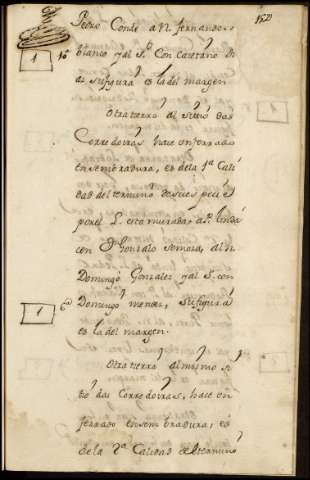 152
Pedro Conde a N. fernando
blanco y al P. Con Caietano
1 16 su figura es la del margen
Otra tierra al sitio das
Corredoiras hace un ferrado
En sembradura, es de la 1ª Cali
dad del termino
por el L. esta murada, al P. linda
con Dn. Gonzalo Somoza, al N.
Domingo Gonzalez y al S. con
1 6 Domingo mendez, Su figura
es la del margen
Otra tierra al mismo si
tio das Corredoiras, hace un
ferrado en sembradura, es
de la 2ª Calidad del termino